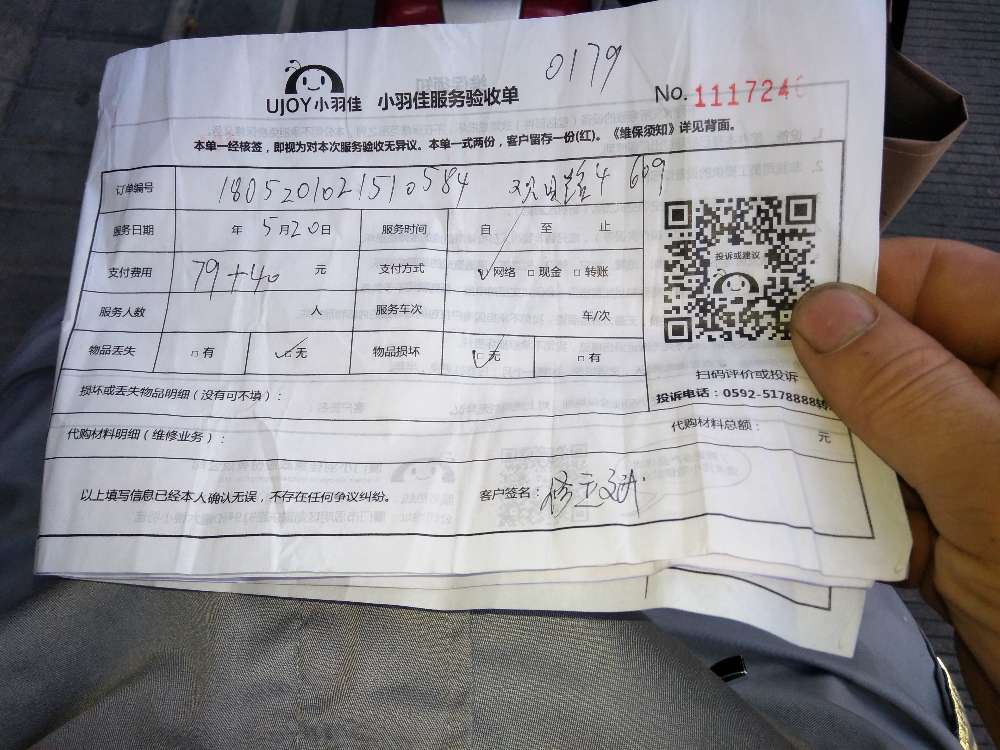 0179
UJOY小羽佳 小羽佳服务验收单 No. 1117246
本单一经核签，即视为对本次服务验收无异议。本单一式两份，客户留存一份(红)。《维保须知》详见背面。
订单编号 1805201021510584 路4 609
服务日期 年 5月20日 服务时间 自 至 止
投诉或建议
支付费用 79+40 元 支付方式 网络 现金 转账
服务人数 人 服务车次 车/次
物品丢失 有 无 物品损坏 无 有
扫码评价或投诉
损坏或丢失物品明细（没有可不填）：
投诉电话：0592-5178888转
代购材料明细（维修业务）： 代购材料总额： 元
以上填写信息已经本人确认无误，不存在任何争议纠纷。 客户签名：